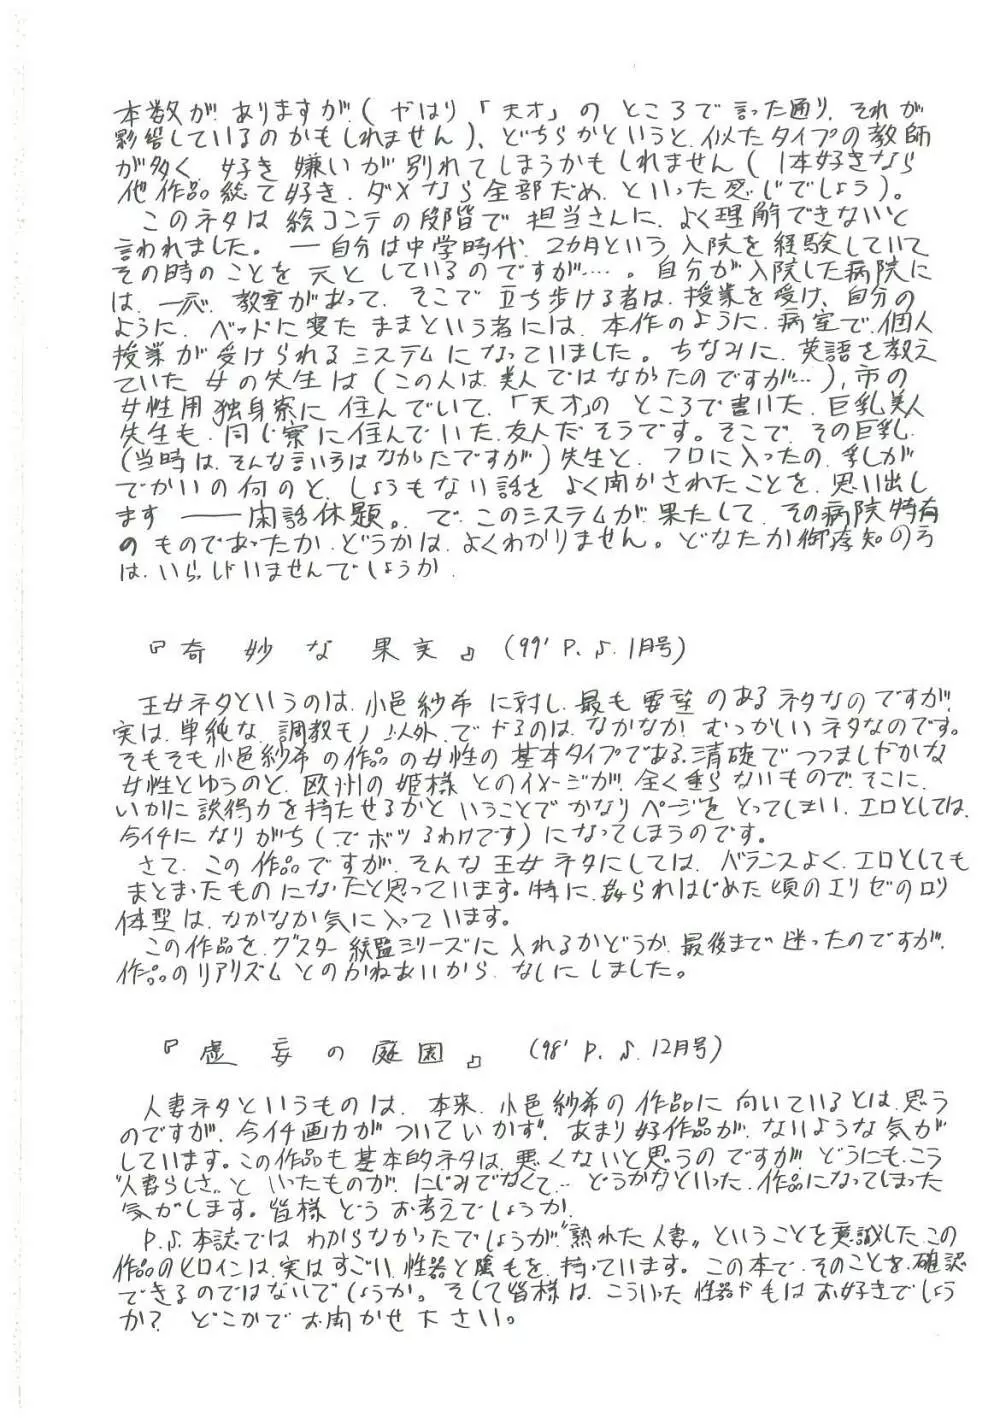 本数がありますが(やはり「天才」のところで言った通り、それが
影響しているのかもしれません)、どちらかというと、似たタイプの教師
が多く、好き嫌いが別れてしまうかもしれません(1本好きなら
他作品総て好き、ダメなら全部だめ、といった感じでしょう)。
このネタは絵コンテの段階で担当さんに、よく理解できないと
言われました。―自分は中学時代、2カ月という入院を経験していて
その時のことを元としているのですが…。自分が入院した病院に
は、一応、教室があって、そこで立ち歩ける者は、授業を受け、自分の
ように、ベッドに寝たままという者には、本作のように、病室で、個人
授業が受けられるシステムになっていました。ちなみに、英語を教え
ていた女の先生は(この人は、美人ではなかったのですが…)、市の
女性用独身寮に住んでいて、「天才」のところで書いた、巨乳美人
先生も、同じ寮に住んでいた、友人だそうです。そこで、その巨乳
(当時は、そんな言いろはなかたですが)先生と、フロに入ったの、乳が
でかいの何のと、しょうもない話を、よく聞かされたことを、思い出し
ます ――閑話休題。で、このシステムが果たして、その病院特有
のものであったか、どうかは、よくわかりません。どなたか御存知の方
は、いらっしゃいませんでしょうか.
『奇妙な果実』(99' P.♪.1月号)
王女ネタというのは、小邑紗希に対し、最も要望のあるネタなのですが、
実は、単純な、調教モノ以外、でやるのは、なかなか、むつかしいネタなのです。
そもそも小邑紗希の作品の女性の基本タイプである、清礎でつつましやかな
女性とゆうのと、欧州の姫様とのイメージが、全く重らないもので、そこに、
いかに説得力を持たせるかということでかなりページをとってしまい、エロとしては、
今イチになりがち(でボツるわけです)になってしまうのです。
さて、この作品ですが、そんな王女ネタにしては、バランスよく、エロとしても
まとまったものになったと思っています。特に、姦られはじめた頃のエリゼのロリ
体型は、なかなか気に入っています。
この作品を、グスター総監シリーズに入れるかどうか、最後まで迷ったのですが、
作品のリアリズムとのかねあいから、なしにしました。
『虚妄の庭園』(98' P.♪.12月号)
人妻ネタというものは、本来、小邑紗希の作品に向いているとは、思う
のですが、今イチ画力がついていかず、あまり好作品が、ないような気が
しています。この作品も基本的ネタは、悪くないと思うのですが、どうにも、こう
"人妻らしさ"といったものが、にじみでなくて… どうかなといった、作品になってしまった
気がします。皆様どうお考えでしょうか.
P.♪.本誌ではわからなかったでしょうが、"熟れた人妻"ということを意識したこの
作品のヒロインは、実はすごい、性器と陰毛を持っています。この本で、そのことを、確認
できるのではないでしょうか。そして皆様は、こういった性器かもはお好きでしょう
か? どこかでお聞かせ下さい。